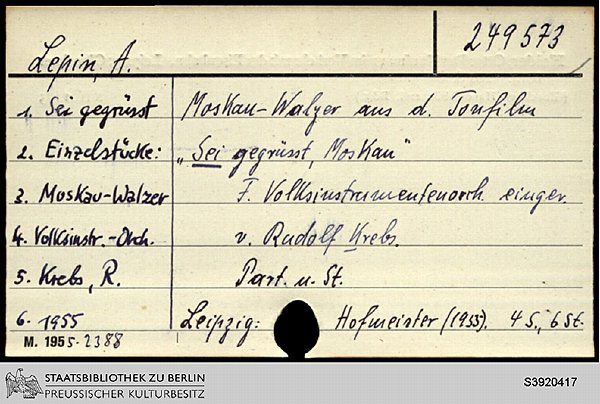 Lepin, A.
249573
1. Sei gegrüsst
Moskau-Walzer aus d. Tonfilm
2. Einzelstücke:
„Sei gegrüsst, Moskau"
3. Moskau-Walzer
F. Volksinstrumentenorch. einger.
4. Volksinstr.-Orch.
v. Rudolf Krebs.
5. Krebs, R.
Part. u. St.
6. 1955
Leipzig: Hofmeister (1955). 4 S., 6 St.
M. 1955. 2388
STAATSBIBLIOTHEK ZU BERLIN
PREUSSISCHER KULTURBESITZ
S3920417